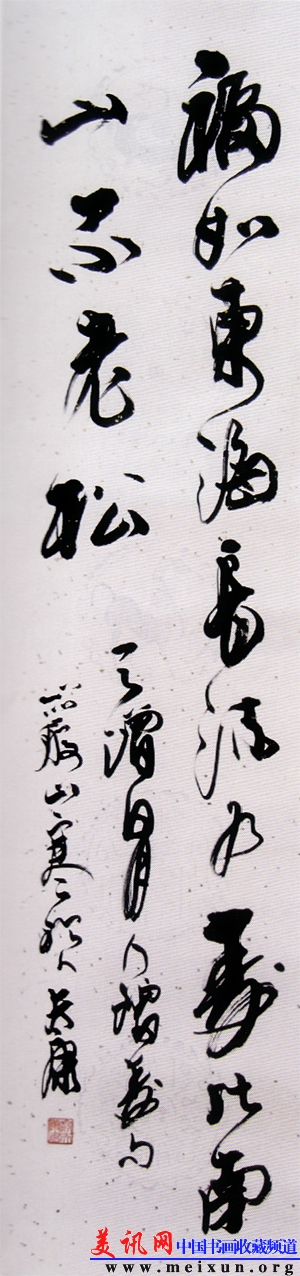 福如東海長流水壽比南
山不老松
人增壽句
美讯网 中国书画收藏频道
www.meixun.org